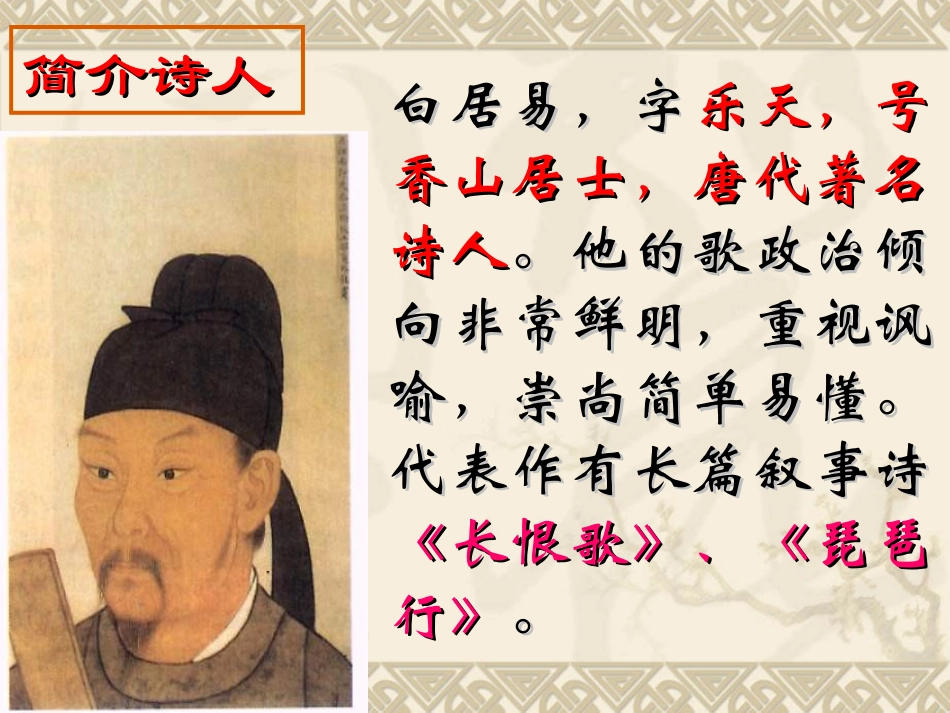 简介诗人
白居易，字乐天，号
香山居士，唐代著名
诗人。他的歌政治倾
向非常鲜明，重视讽
喻，崇尚简单易懂。
代表作有长篇叙事诗
《长恨歌》、《琵琶
行》。